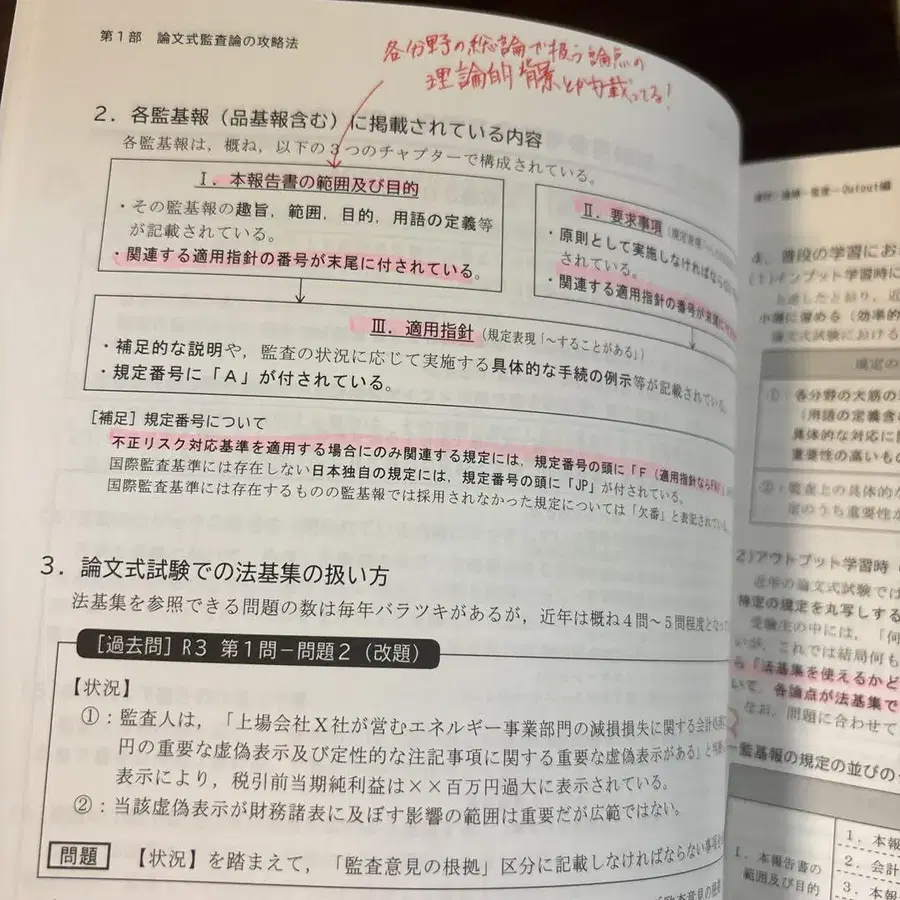 第1部　論文式監査論の攻略法
各分野の総論で扱う論点の
理論的背景とかが載ってる！
2．各監基報（品基報含む）に掲載されている内容
各監基報は，概ね，以下の3つのチャプターで構成されている。
Ⅰ．本報告書の範囲及び目的
・その監基報の趣旨，範囲，目的，用語の定義等
が記載されている。
・関連する適用指針の番号が末尾に付されている。
Ⅱ．要求事項
・原則として実施しなければならない
されている。
・関連する適用指針の番号が末尾に
Ⅲ．適用指針（規定表現「～することがある」）
・補足的な説明や，監査の状況に応じて実施する具体的な手続の例示等が記載されている。
・規定番号に「A」が付されている。
［補足］規定番号について
不正リスク対応基準を適用する場合にのみ関連する規定には，規定番号の頭に「F（適用指針ならFA）」
国際監査基準には存在しない日本独自の規定には，規定番号の頭に「JP」が付されている。
国際監査基準には存在するものの監基報では採用されなかった規定については「欠番」と表記されている。
3．論文式試験での法基集の扱い方
法基集を参照できる問題の数は毎年バラツキがあるが，近年は概ね4問～5問程度となって
［過去問］R3 第1問－問題2（改題）
【状況】
①：監査人は，「上場会社X社が営むエネルギー事業部門の減損損失に関する会計処理
円の重要な虚偽表示及び定性的な注記事項に関する重要な虚偽表示がある」と
表示により，税引前当期純利益は××百万円過大に表示されている。
②：当該虚偽表示が財務諸表に及ぼす影響の範囲は重要だが広範ではない。
問題　【状況】を踏まえて，「監査意見の根拠」区分に記載しなければならない事項
4．普段の学習にお
(1)インプット学習時に
論文式試験における
規定の
①：各分野の大筋の
（用語の定義含
具体的な対応に関
重要性の高いもの
②：監査上の具体的な
定のうち重要性が
2)アウトプット学習時
近年の論文式試験では
特定の規定を丸写しする
受験生の中には，「何
いが，これでは結局何も
ら「法基集を使えるかど
いて，各論点が法基集で
なお，問題に合わせて
監基報の規定の並びの
1．本報告書の
範囲及び目的
1．本報
2．会計
3．本報